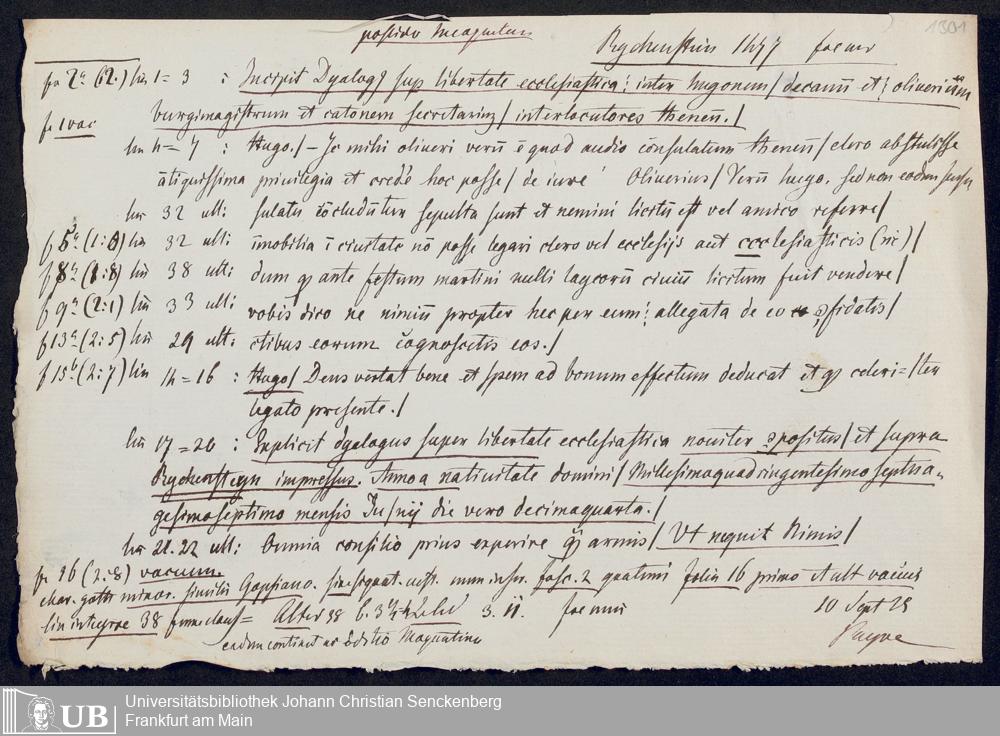 1301
postidu Moguntum
Rychenstein 1477
fo 2a (12.) lin 1 = 3 : Incipit Dyalog9 sup libertate ecclesiastica: inter hugonem/ decanū et/ oliverium
fo 1 vac burgimagistrum et catonem secretariuz/ interlocutores thenen̄./
lin 4 = 7 : Hugo./ - Jc mihi oliveri verū ē quod audio cōnsulatum thenen̄/ clero abstulisse
ātiquissima privilegia et credē hoc posse/ de iure Oliverius/ Verū hugo. sed non eodem
lin 32 ult: sulatu cōcludūtur sepulta sunt et nemini licitū est vel amico referre/
f 5a (1:) lin 32 ult: īmobilia ī civitate nō posse legari clero vel ecclesijs aut ecclesiasticis (sic)/
f 8a (1:8) lin 38 ult: dum q3 ante festum martini nulli laycorū civiū licitum fuit vendere/
f 9a (2:1) lin 33 ult: vobis dico ne nimiū propter hec per eum: allegata de eo ↄfidatis/
f 13a (2:5) lin 29 ult. ctibus eorum cognoscetis eos./
f 15b (2:7) lin 14 = 16 : Hugo/ Deus vertat bene et spem ad bonum effectum deducat et q3 celeri=/ter
legato presente./
lin 17 = 20 : Explicit dyalogus super libertate ecclesiastica noviter ↄpositus/ et supra
Rychensteyn impressus. Anno a nativitate domini/ Millesimoquadringentesimoseptua-
gesimoseptimo mensis Iu/nij die vero decimaquarta./
lin 21. 22 ult: Omnia consilio prius experire q̄3 armis/ Vt nequit Nimis/
fo 16 (2:8) vacuum.
char. goth minor. similis Gopsiano. sine signat. cust. num. inser. fasc. 2 quaterni folia 16 primo et ult vacuis
lin integrae 38 3. II. 10 Sept 28
eadem continet ac Editio Moguntina
Universitätsbibliothek Johann Christian Senckenberg
UB Frankfurt am Main